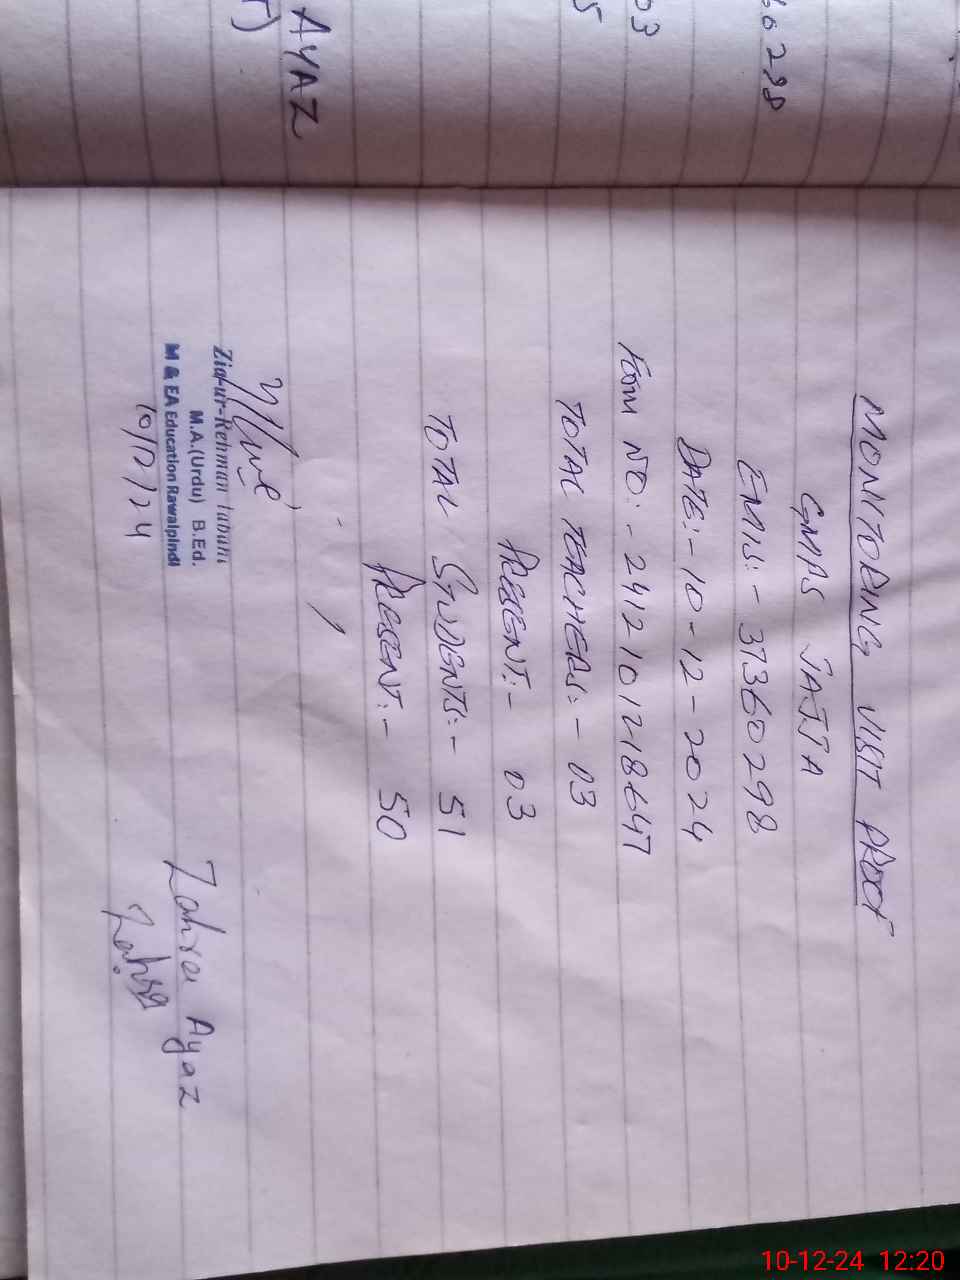 AYAZ
03
5
60298
MONITORING VISIT PROOF
GMPS JAJJA
EMIS:- 37360298
DATE:- 10-12-2024
FORM NO:- 2412101218647
TOTAL TEACHERS:- 03
PRESENT:- 03
TOTAL STUDENTS:- 51
PRESENT:- 50
Zia-ur-Rehman
M.A.(Urdu) B.Ed.
M & EA Education Rawalpindi
10/12/24
Zahra Ayaz
Zahra
10-12-24 12:20